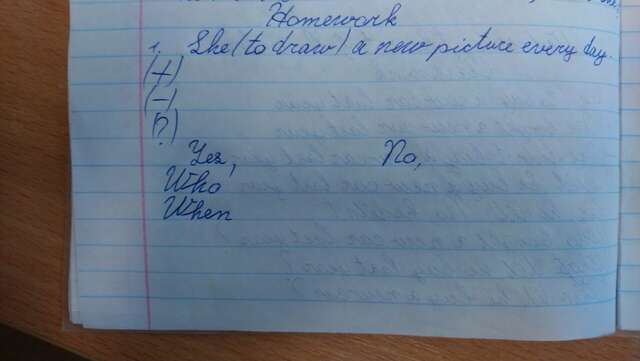 Homework
1. She (to draw) a new picture every day.
(+)
(-)
(?)
Yes, No,
Who
When